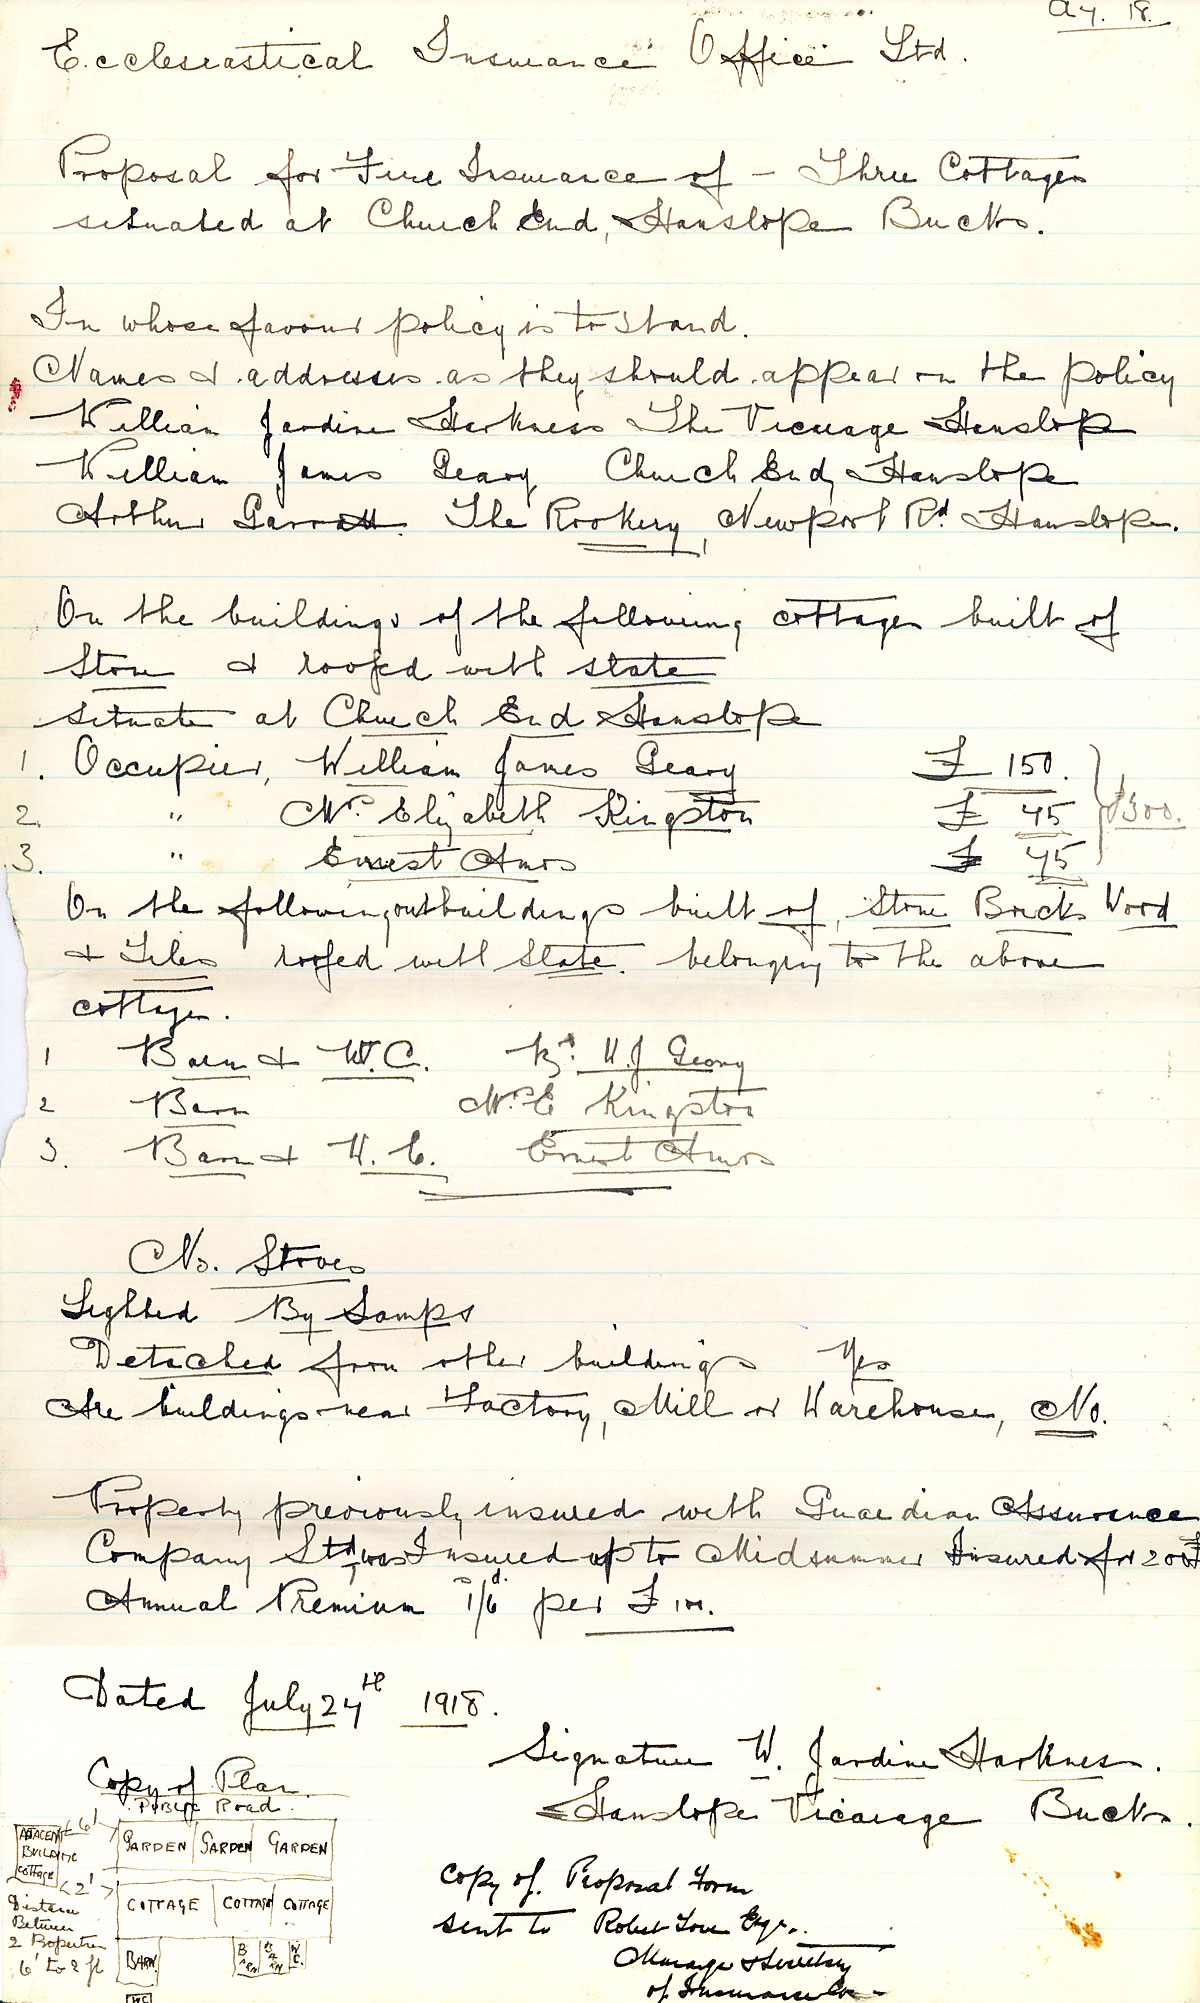 Ay. 18.
Ecclesiastical Insurance Office Ltd.
Proposal for Fire Insurance of - Three Cottages
situated at Church End, Hanslope Bucks.
In whose favour policy is to stand.
Names & addresses as they should appear on the policy
William Jardine Harkness The Vicarage Hanslope
William James Geary Church End, Hanslope
Arthur Garratt. The Rookery, Newport Rd Hanslope.
On the buildings of the following cottages built of
Stone & roofed with slate
situate at Church End Hanslope
1. Occupier, William James Geary £ 150.
2. " Mrs Elizabeth Kingston £ 75 £300.
3. " Ernest Amos £ 75
On the following outbuildings built of, Stone Bricks Wood
& Tiles roofed with Slate. belonging to the above
cottages.
1 Barn & W.C. W.J Geary
2 Barn Mrs E Kingston
3. Barn & W.C. Ernest Amos
No. Stoves
Lighted By Lamps
Detached from other buildings Yes
Are buildings near Factory, Mill or Warehouse, No.
Property previously insured with Guardian Assurance
Company Ltd, was Insured up to Midsummer Insured for 200£
Annual Premium 1s/6d per £100.
Dated July 24th 1918.
Signature W. Jardine Harkness.
Hanslope Vicarage Bucks.
Copy of Plan.
Public Road.
ADJACENT BUILDING COTTAGE
6'
GARDEN GARDEN GARDEN
2'
COTTAGE COTTAGE COTTAGE
Distance
Between
2 Properties
6' to 2 ft
BARN BARN BARN W.C.
WC
Copy of Proposal Form
sent to Robert Love Esqr.
Manager & Secretary
of Insurance Co